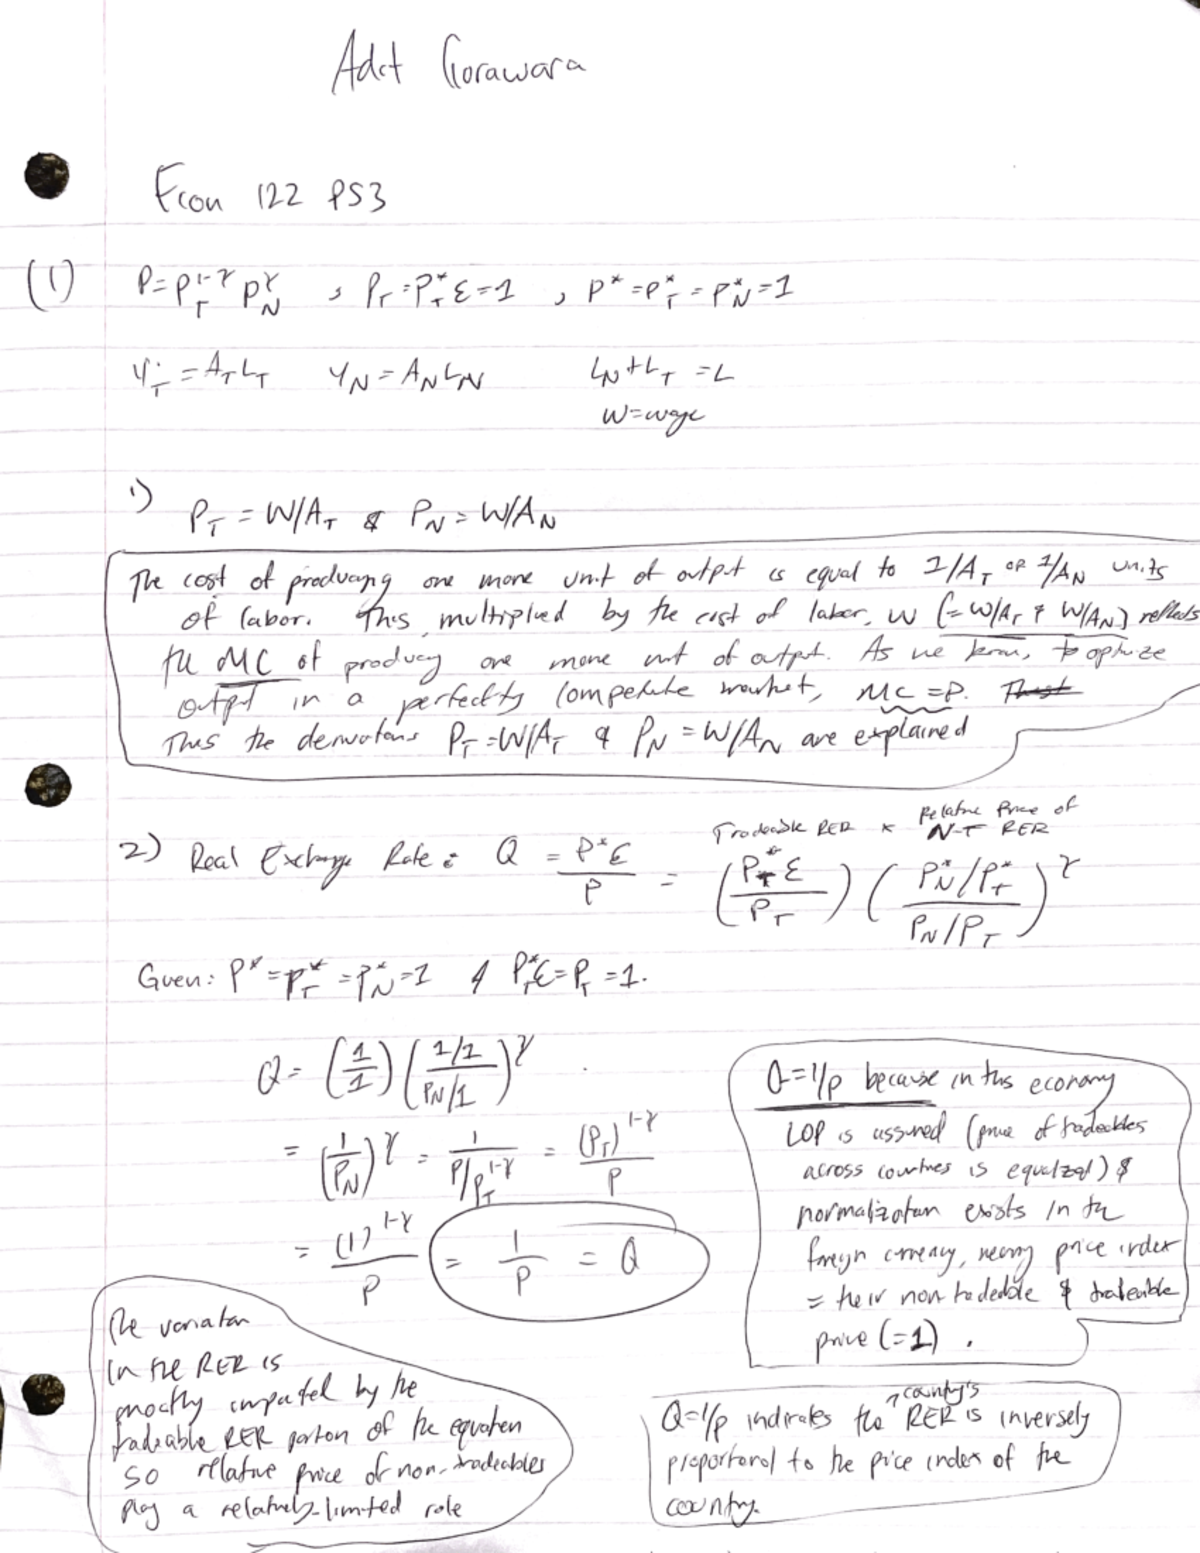 Adit Gorawara
Econ 122 PS3
(1) P=P_T^{1-γ} P_N^γ , P_T=P_T^*ε=1 , P^*=P_T^*=P_N^*=1
Y_T=A_TL_T Y_N=A_NL_N L_N+L_T=L
W=wage
1) P_T=W/A_T & P_N=W/A_N
The cost of producing one more unit of output is equal to 1/A_T or 1/A_N units
of labor. This multiplied by the cost of labor, W (=W/A_T & W/A_N) reflects
the MC of producing one more unit of output. As we know, to optimize
output in a perfectly competitive market, MC=P.
Thus the derivations P_T=W/A_T & P_N=W/A_N are explained
Tradeable RER × Relative Price of
N-T RER
2) Real Exchange Rate: Q = P^*ε/P = (P_T^*ε/P_T)((P_N^*/P_T^*)/(P_N/P_T))^γ
Given: P^*=P_T^*=P_N^*=1 & P_T^*ε=P_T=1.
Q=(1/1)((1/1)/(P_N/1))^γ
=(1/P_N)^γ = 1/(P/P_T^{1-γ}) = (P_T)^{1-γ}/P
= (1)^{1-γ}/P = 1/P = Q
Q=1/P because in this economy
LOP is assumed (price of tradeables
across countries is equalized) &
normalization exists in the
foreign currency, meaning price index
= their non tradeable & tradeable
price (=1).
The variation
in the RER is
mostly impacted by the
tradeable RER portion of the equation
so relative price of non-tradeables
play a relatively-limited role
Q=1/P indicates the country's RER is inversely
proportional to the price index of the
country.